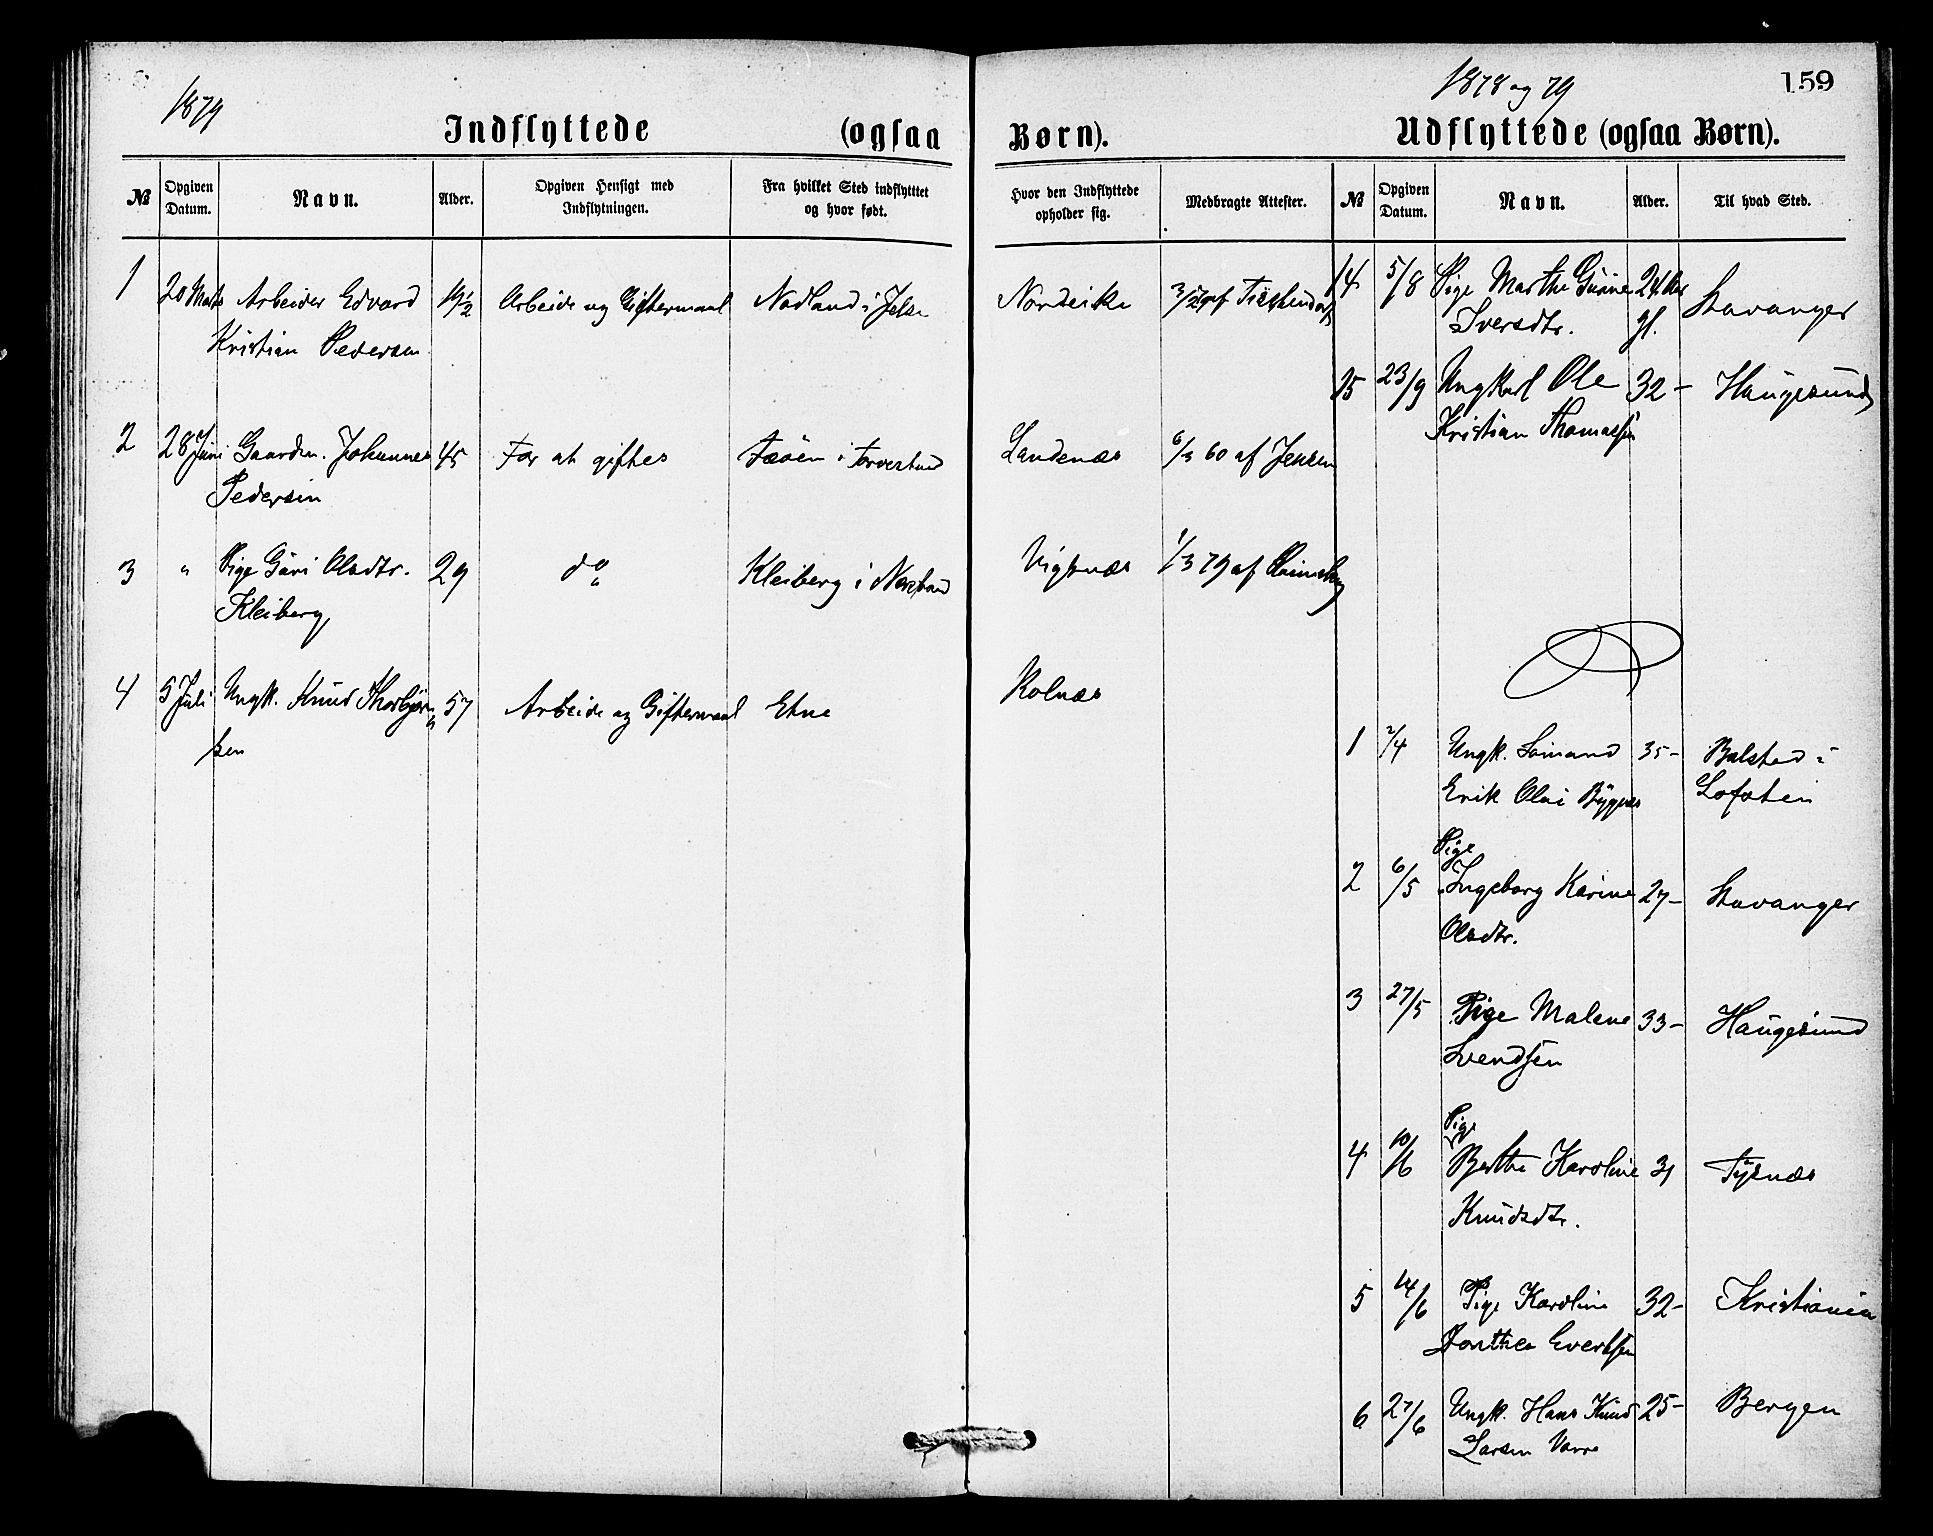 1879
Indflyttede (ogsaa Børn).
№ Opgiven Datum. Navn. Alder. Opgiven Hensigt med Indflytningen. Fra hvilket Sted indflytttet og hvor født. Hvor den Indflyttede opholder sig. Medbragte Attester.
1 20 Marts Arbeider Edvard Arbeide og Giftermaal Nadland i Jelse Nordvike
Kristian Pedersen
2 28 Juni Gaardm. Johannes 45 For at giftes Føøen i Torvestad Sandenæs 6/3 60 af Jensen
Pedersen
3 " Pige Guri Olsdtr. 29 do Kleiberg i Nerstrand Vigsnæs 1/3 79 af
Kleiberg
4 5 Juli Ungk. Knud Thorbjørn 57 Arbeide og Giftermaal Etne Kolnæs
sen
1878 og 79
159
Udflyttede (ogsaa Børn).
№ Opgiven Datum. Navn. Alder. Til hvad Sted.
14 5/8 Pige Marthe Gurine 24 Aar Stavanger
Iversdtr. gl.
15 23/9 Ungkarl Ole 32 - Haugesund
Kristian Thomassen
1 2/4 Ungk. Sømand 35 - Balstad i
Erik Olai Bygnes Lofoten
Pige
2 6/5 Ingeborg Karine 27 - Stavanger
Olsdtr.
3 27/5 Pige Malene 33 - Haugesund
Svendsen
Pige
4 10/6 Berthe Karoline 31 Tysnæs
Knudsdtr.
5 14/6 Pige Karoline 32 - Kristiania
Dorthea Evertsen
6 27/6 Ungk. Hans Knud 25 - Bergen
Larsen Vorre